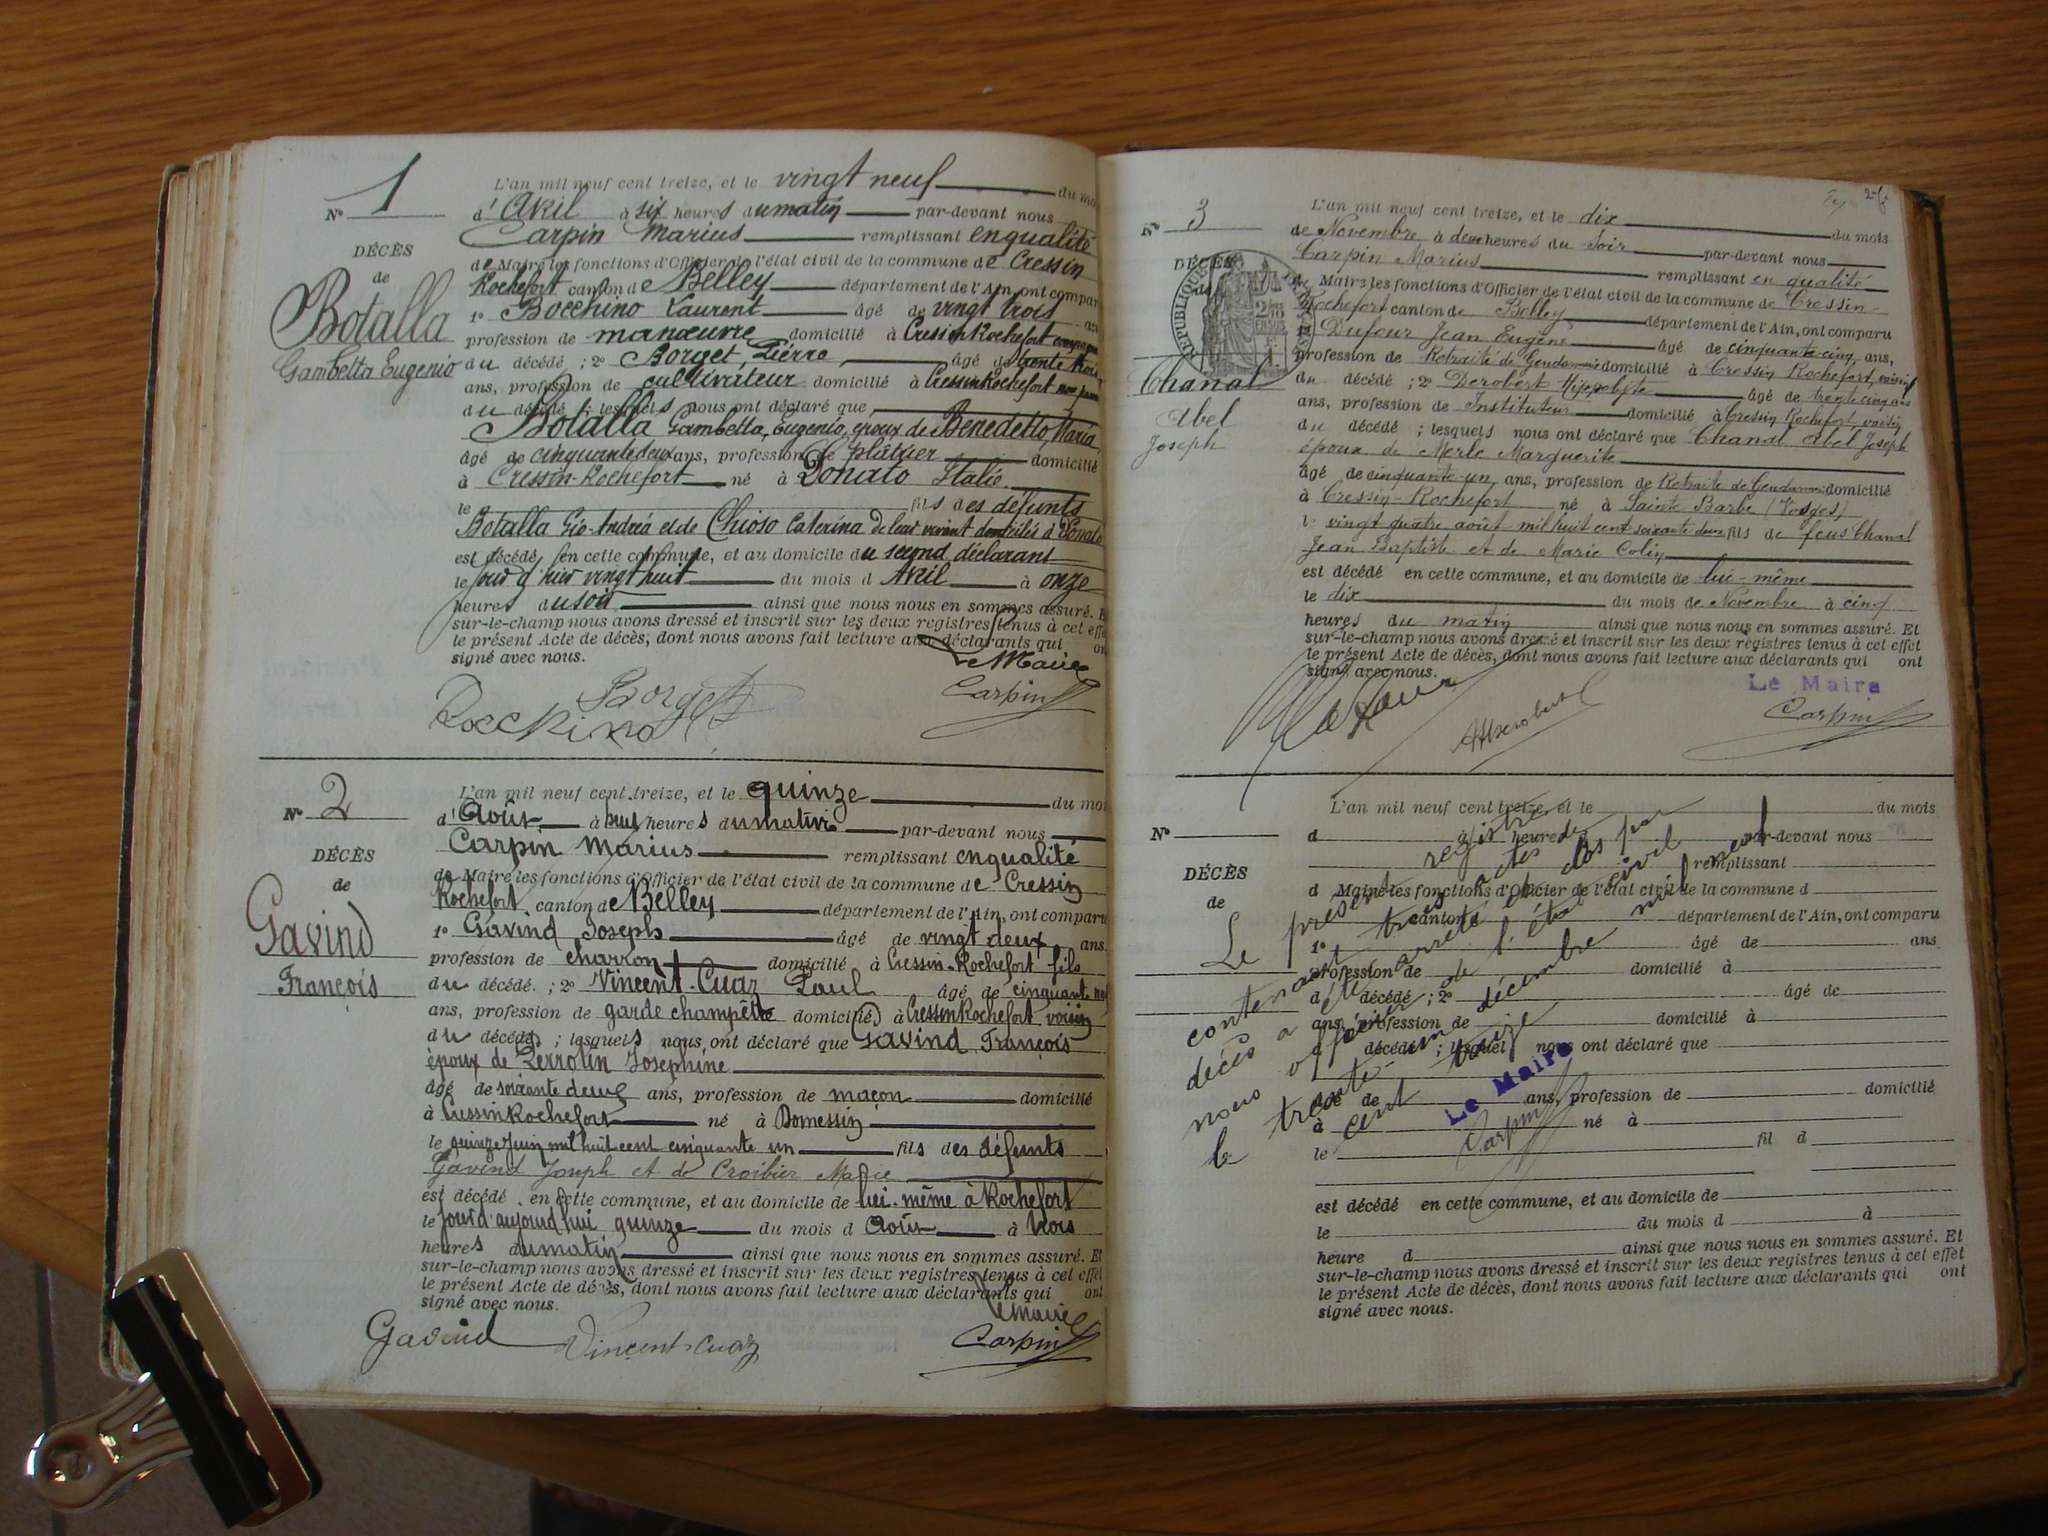 1
Nº
DÉCÈS
de
Botalla
Gambetta Eugenio
L'an mil neuf cent treize, et le vingt neuf du mo
d'Avril à six heures du matin par-devant nous
Carpin Marius remplissant en qualité
de Maire les fonctions d'Officier de l'état civil de la commune de Cressin
Rochefort canton de Belley département de l'Ain, ont compar
1º Bocchino Laurent âgé de vingt trois
profession de manœuvre domicilié à Cressin Rochefort
du décédé ; 2º Borget, Pierre, âgé de trente
ans, profession de cultivateur domicilié à Cressin Rochefort
du décédé ; lesquels nous ont déclaré que
Botalla Gambetta, Eugenio, époux de Benedetto, Maria,
âgé de cinquante deux ans, profession de plâtrier domicilié
à Cressin-Rochefort né à Donato Italie
le fils des défunts
Botalla Gio-Andréa et de Chioso Caterina de leur vivant domiciliés à Donato
est décédé, en cette commune, et au domicile du second déclarant
le jour d'hier vingt huit du mois d'Avril à onze
heures du soir ainsi que nous nous en sommes assuré. E
sur-le-champ nous avons dressé et inscrit sur les deux registres tenus à cet effe
le présent Acte de décès, dont nous avons fait lecture aux déclarants qui on
signé avec nous.
Le Maire
Borget
Bocchino
Carpin
Nº 2
DÉCÈS
de
Gavind
François
L'an mil neuf cent treize, et le quinze du moi
d'Août à huit heures du matin par-devant nous
Carpin Marius remplissant en qualité
de Maire les fonctions d'Officier de l'état civil de la commune de Cressin
Rochefort canton de Belley département de l'Ain, ont comparu
1º Gavind Joseph âgé de vingt deux ans
profession de charron domicilié à Cressin-Rochefort fils
du décédé ; 2º Vincent-Cuaz Paul âgé de cinquante
ans, profession de garde champêtre domicilié à Cressin Rochefort voisin
du décédé ; lesquels nous ont déclaré que Gavind François
époux de Perrolin Josephine
âgé de soixante deux ans, profession de maçon domicilié
à Cressin Rochefort né à Domessin
le quinze Juin mil huit cent cinquante un fils des défunts
Gavind Joseph et de Croibier Marie
est décédé en cette commune, et au domicile de lui-même à Rochefort
le jour d'aujourd'hui quinze du mois d'Août à trois
heures du matin ainsi que nous nous en sommes assuré. Et
sur-le-champ nous avons dressé et inscrit sur les deux registres tenus à cet effet
le présent Acte de décès, dont nous avons fait lecture aux déclarants qui ont
signé avec nous.
Le Maire
Gavind Vincent-Cuaz Carpin
Nº 3
DÉCÈS
de
Chanal
Abel
Joseph
L'an mil neuf cent treize, et le dix du mois
de Novembre à deux heures du Soir par-devant nous
Carpin Marius remplissant en qualité
de Maire les fonctions d'Officier de l'état civil de la commune de Cressin-
Rochefort canton de Belley département de l'Ain, ont comparu
1º Dufour Jean Eugène âgé de cinquante-cinq ans,
profession de Retraité de Gendarmerie domicilié à Cressin Rochefort, voisin
du décédé ; 2º Derobert Hippolyte âgé de trente cinq ans
ans, profession de Instituteur domicilié à Cressin Rochefort voisin
du décédé ; lesquels nous ont déclaré que Chanal Abel Joseph
époux de Merle Marguerite
âgé de cinquante un ans, profession de Retraité de Gendarmerie domicilié
à Cressin-Rochefort né à Sainte Barbe (Vosges)
le vingt quatre août mil huit cent soixante deux fils de feus Chanal
Jean Baptiste et de Marie Colin
est décédé en cette commune, et au domicile de lui-même
le dix du mois de Novembre à cinq
heures du matin ainsi que nous nous en sommes assuré. Et
sur-le-champ nous avons dressé et inscrit sur les deux registres tenus à cet effet
le présent Acte de décès, dont nous avons fait lecture aux déclarants qui ont
signé avec nous.
Le Maire
Carpin
Nº
DÉCÈS
de
L'an mil neuf cent treize, et le du mois
d à heure d par-devant nous
remplissant
d Maire les fonctions d'Officier de l'état civil de la commune d
canton d département de l'Ain, ont comparu
1º âgé de ans
profession de domicilié à
d décédé ; 2º âgé de
ans, profession de domicilié à
d décédé ; lesquel nous ont déclaré que
âgé de ans, profession de domicilié
à né à
le fil d
est décédé en cette commune, et au domicile de
le du mois d à
heure d ainsi que nous nous en sommes assuré. Et
sur-le-champ nous avons dressé et inscrit sur les deux registres tenus à cet effet
le présent Acte de décès, dont nous avons fait lecture aux déclarants qui ont
signé avec nous.
Le présent registre
contenant trois actes de
décès a été arrêté et clos par
nous officier de l'état civil
le trente-un décembre mil neuf
cent treize
Le Maire
Carpin